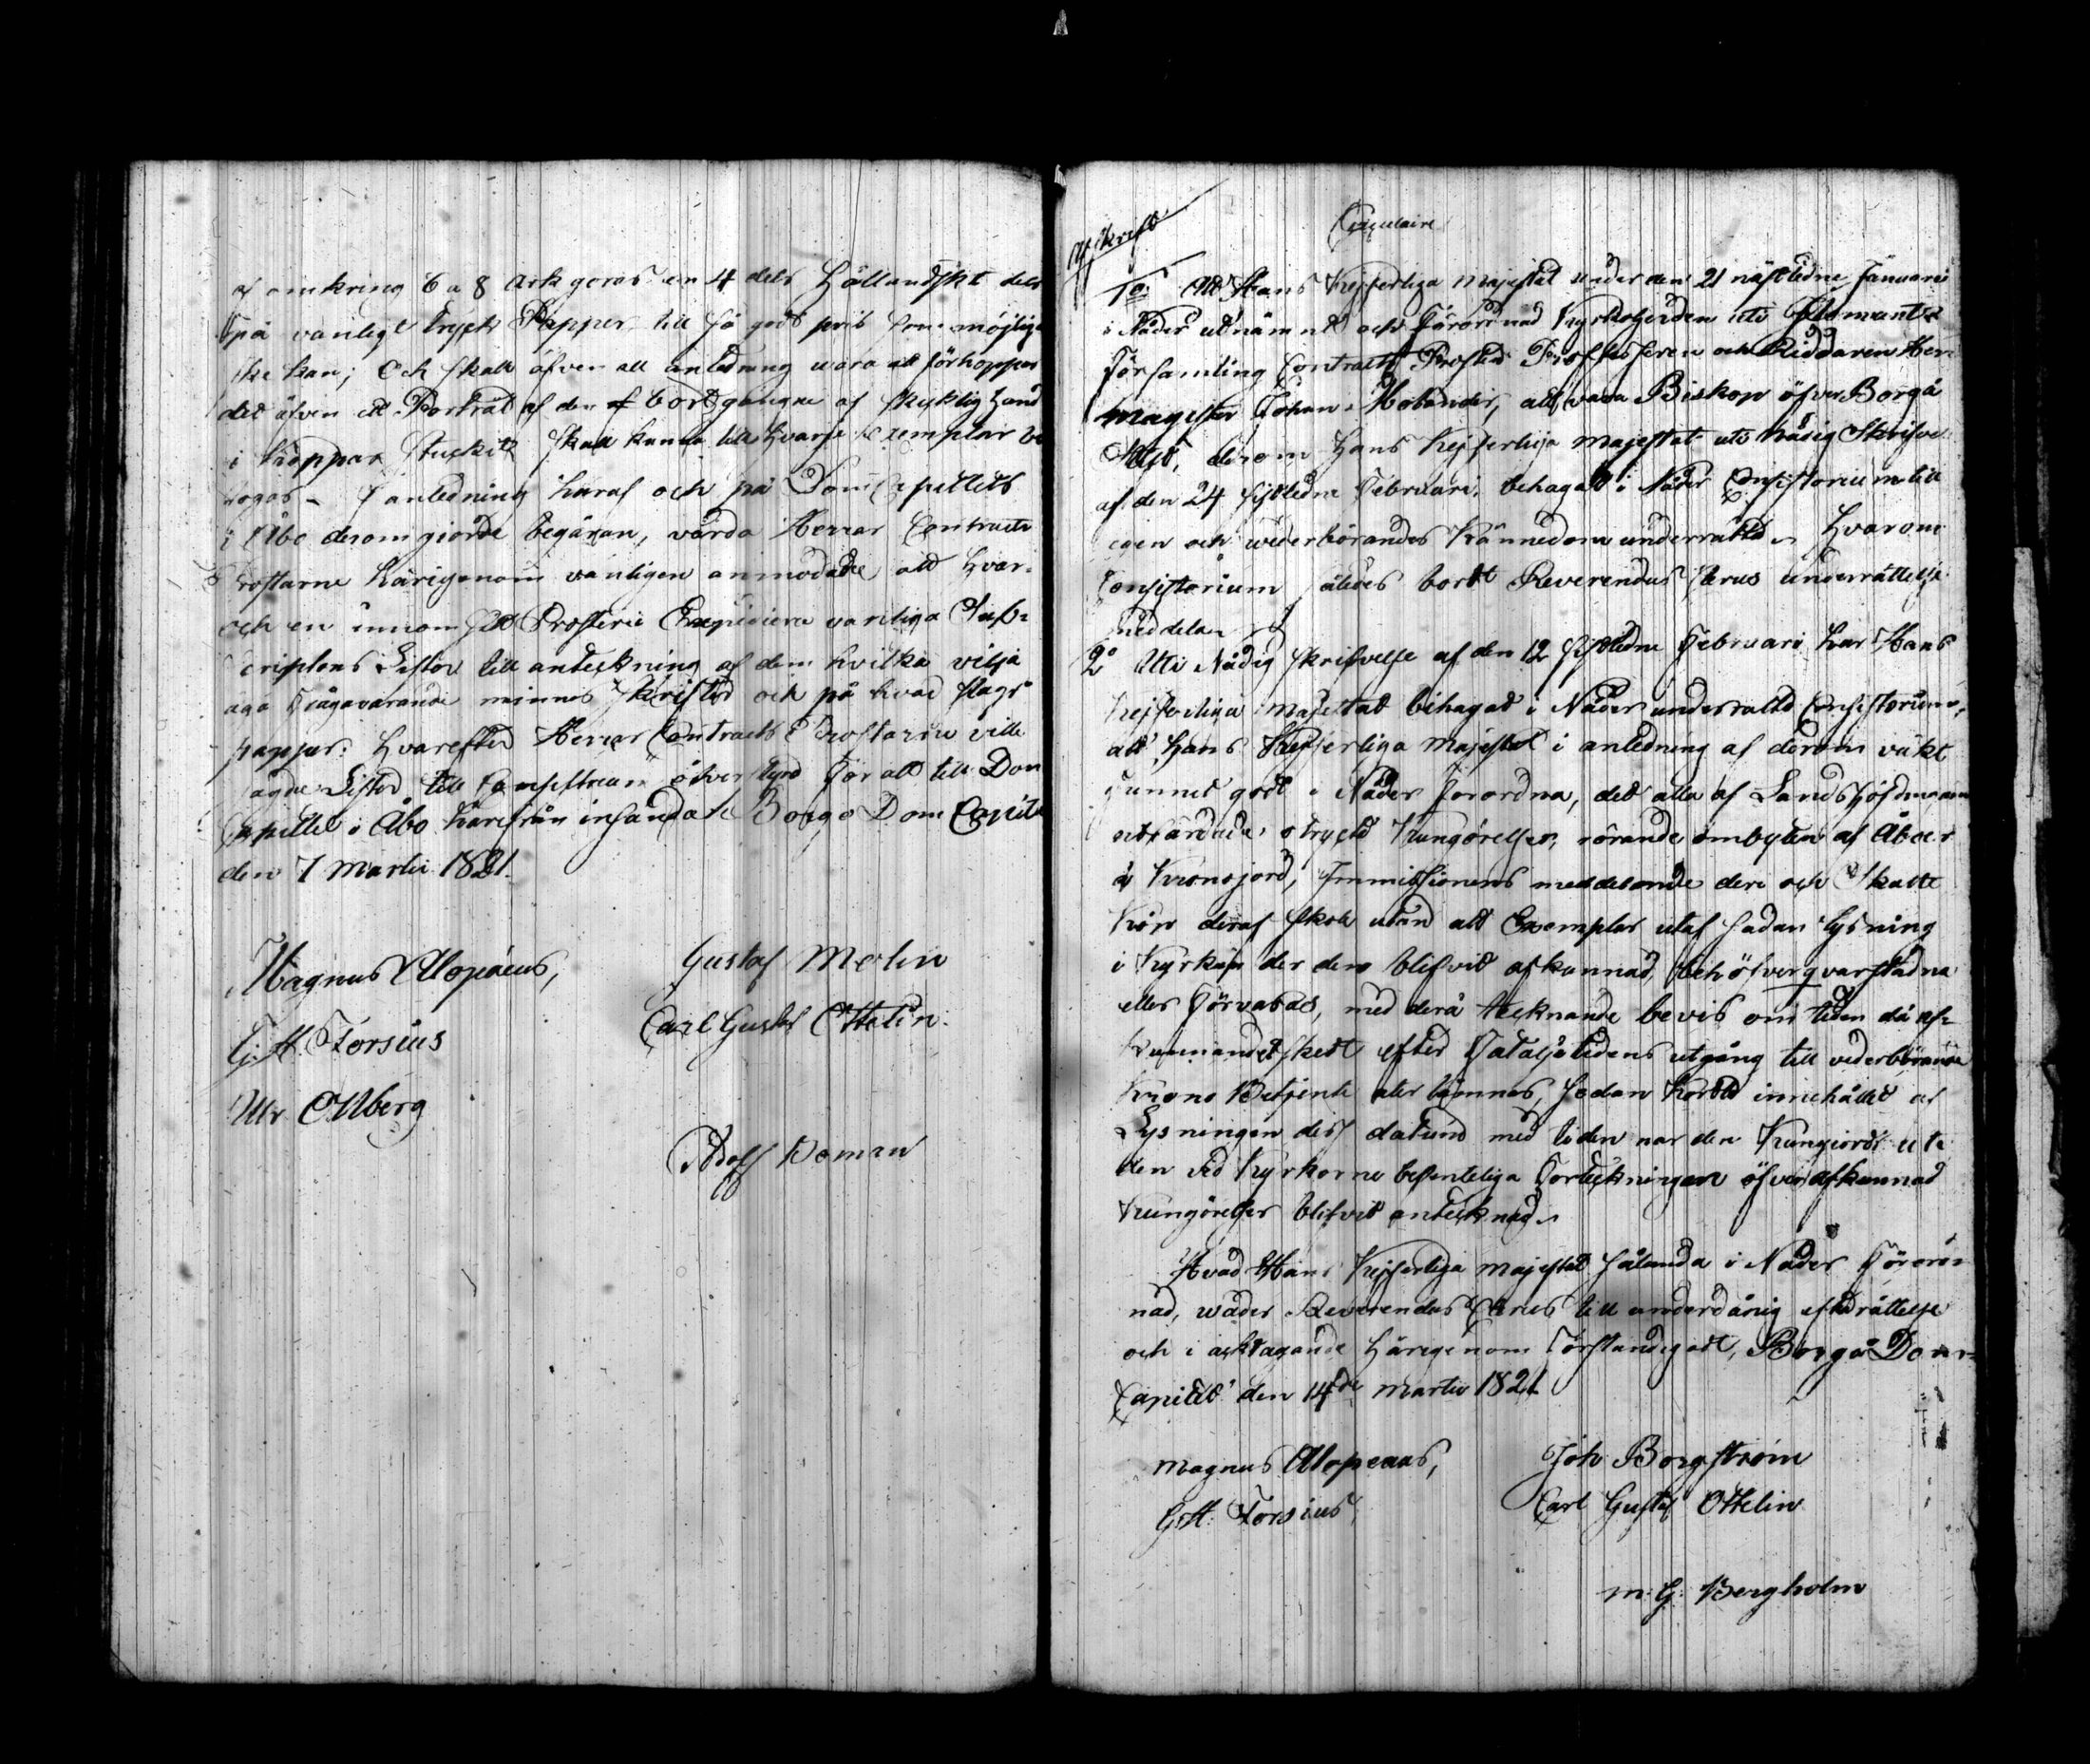 af omkring 6 a 8 Ark göras en 4 dels Hållandskt dels
på vanligt Tryck Papper till så godt pris som möjligt
ske kan; Och skall äfven all anledning wara att förhoppas
det äfven ett Portrait af den bortgångne af skicklig hand
i Koppar stuckit skall kunna till hvarje Exemplar bi
fogas. I anledning häraf och på Dom Capitlets
i Åbo derom giorde begäran, värda Herrar Contracts
Prostarne härigenom vänligen anmodade att hvar
och en innom sitt Prosterie Expediera vanliga Sub-
criptons Listor till anteckning af dem hvilka vilja
äga ifrågavarande minnes skrifter och på hvad slags
papper: hvarefter Herrar Contracts Prostarne ville
sagde Listor till Consistorium öfver styra för att till Dom
Capitlet i Åbo härifrån insändas Borgo Dom Capitel
den 7 Martii 1821.
Magnus Alopæus, Gustaf Molin
G. H. Forsius Carl Gustaf Ottelin.
Mr Ollberg
Adolf Boman
Afskrift
Circulaire
1o Att Hans Kejserliga Majestät under den 21 nästledne Januarii
i Nåder utnämnt och Förordnad Kyrkoherden uti Ilomants
Församling Contracts Prosten Professoren och Riddaren Herr
Magister Johan Molander, att vara Biskop öfver Borgå
Stift, derom Hans Kejserliga Majestät uti nådig Skrifvelse
af den 24 sistledne Februarii behagat i Nåder Consistorium till
egen och wederbörandes Kännedom underrätta. Hvarom
Consistorium således bordt Reverendus Clerus underrättelse
meddela
2o Uti Nådig skrifvelse af den 12 sistledne Februarii har Hans
Kejserliga Majestät behagat i Nåder underrätta Consistorium,
att Hans Kejserliga Majestät i anledning af derom väkt
funnit godt i Nåder förordna, det alla af Landshöfdingarne
utfärdade, otryckta Kungörelser, rörande ombyten af Åboer
å Kronojord, Immissioners meddelande deri och Skatte
Köp deraf skola utan att Exemplar utaf sådan lysning
i Kyrkan der den blifvit afkunnad, behöfver qvarstadna
eller förvaras, med derå tecknande bevis om tiden då af-
kunnandet skedt efter Fatalietidens utgång till vederbörande
Krono Betjente åter lämnas, sedan korta innehållet af
Lysningen dess datum med tiden när den Kungiorts uti
den vid Kyrkorne befinteliga Förteckningen öfver afkunnad
Kungörelser blifvit antecknad.
Hvad Hans Kejserliga Majestät sålunda i Nåder Föroro-
nad, wader Reverendus Clerus till underdånig efterrättelse
och i akttagande härigenom Förständigadt, Borgå Dom-
Capitel den 14de Martii 1821
Magnus Alopæus, Joh Borgström
G. H. Forsius, Carl Gustaf Ottelin
M. G. Bergholm